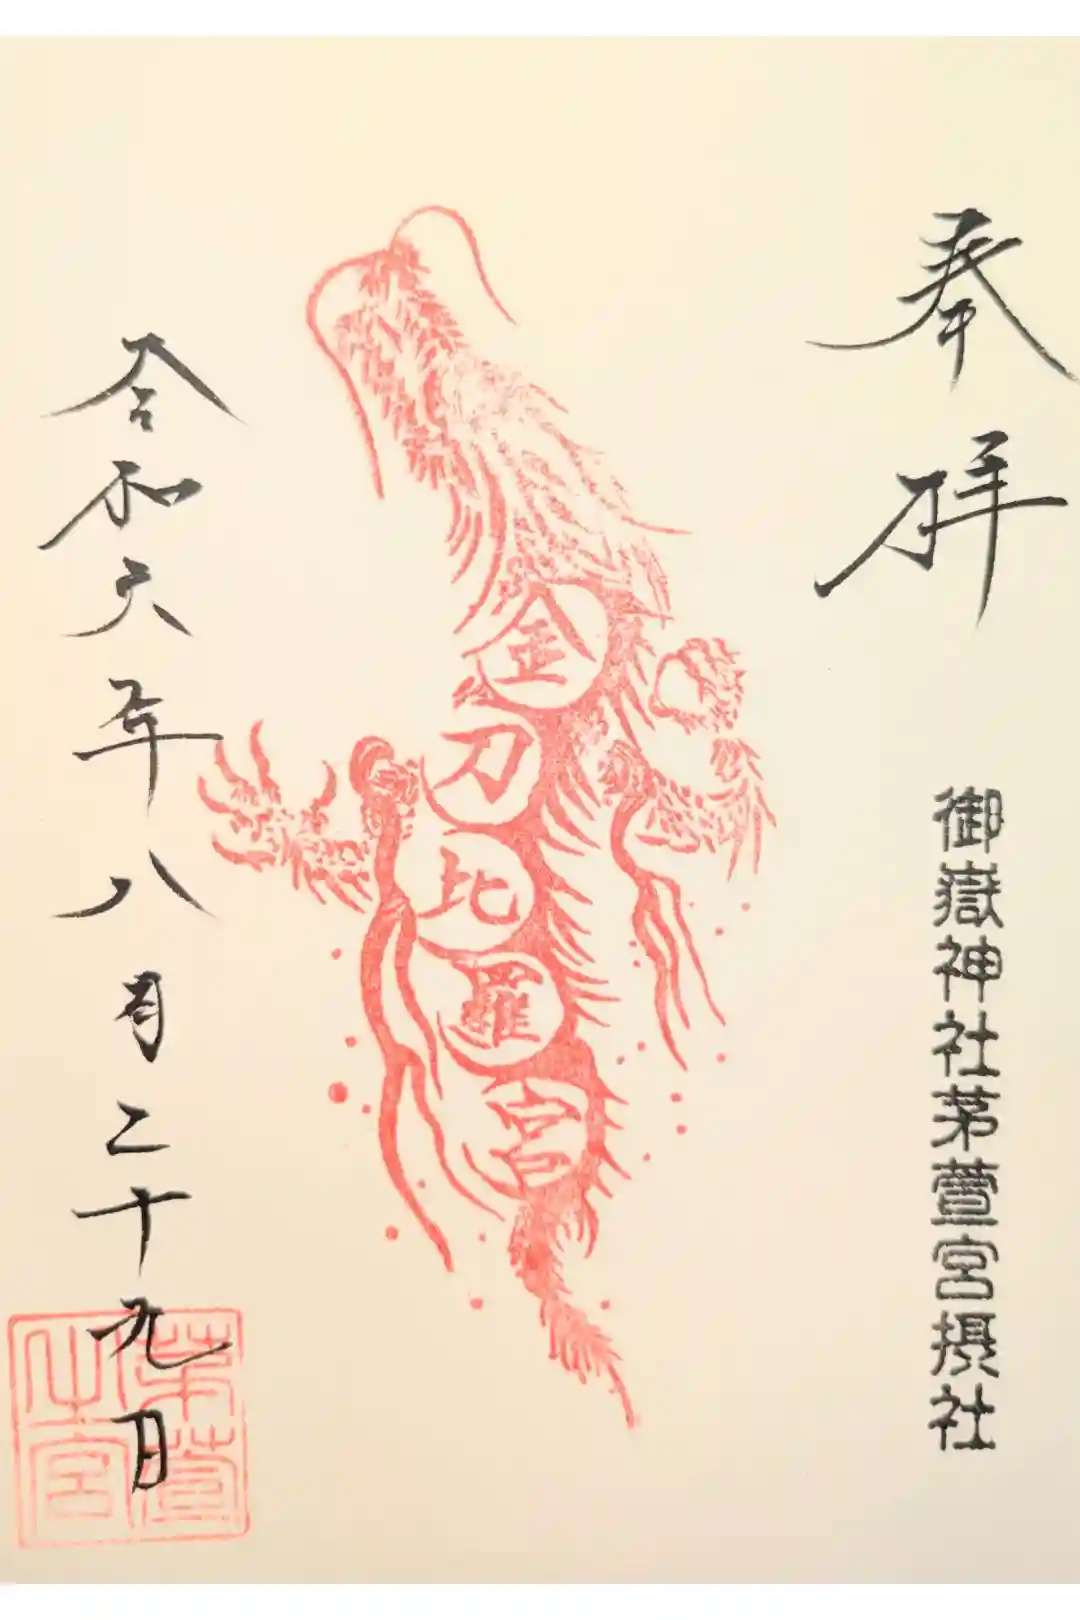 奉拝
御嶽神社茅萱宮摂社
金刀比羅宮
令和六年八月二十九日
茅萱
之宮